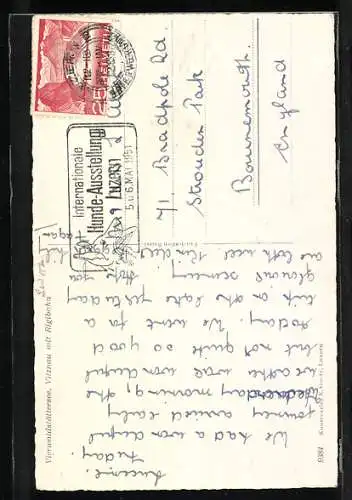 Vierwaldstättersee, Vitznau mit Rigibahn
Lucerne.
Friday.
We had a wonderful
journey arrived early
Wednesday morning, the
weather was wonderful
but not quite so good
today. We went for a
trip on the lake yesterday
glorious scenery hope you
are both well Kind
Internationale
Hunde-Ausstellung
Luzern
5. u. 6. MAI 1951
HELVETIA
25
71 Bradpole Rd.
Strouden Park
Bournemouth.
England
9381